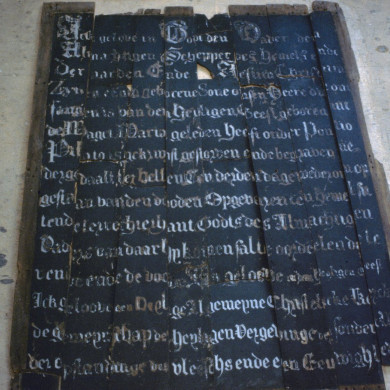 Ick gelove in God den Vader den
Almachtigen Schepper des Hemels ende
Der aarden Ende in Jesum Christum
Zynen eenig geboorene Sone onsen Heere die ont
fangen is van den Heyligen Geest geboren uyt
de Maget Maria geleden Heeft onder Pontio
Pilato is gekruyst gestorven ende begraven ne
dergedaalt ter hellen Ten derden dage wederom op
gestaan van den dooden Opgevaren ten Hemel sit
tende ter rechterhant Godts des Almachtigen
Vaders van daar hy komen sal te oordeelen de le
vende ende de doode Ick geloove in den Heyligen Geest
Ick geloove een Heylige Algemeyne Christelicke Kerck
de gemeynschap der heyligen Vergevinge der sonden
der opstandinge des vleeschs ende een Eeuwigh le